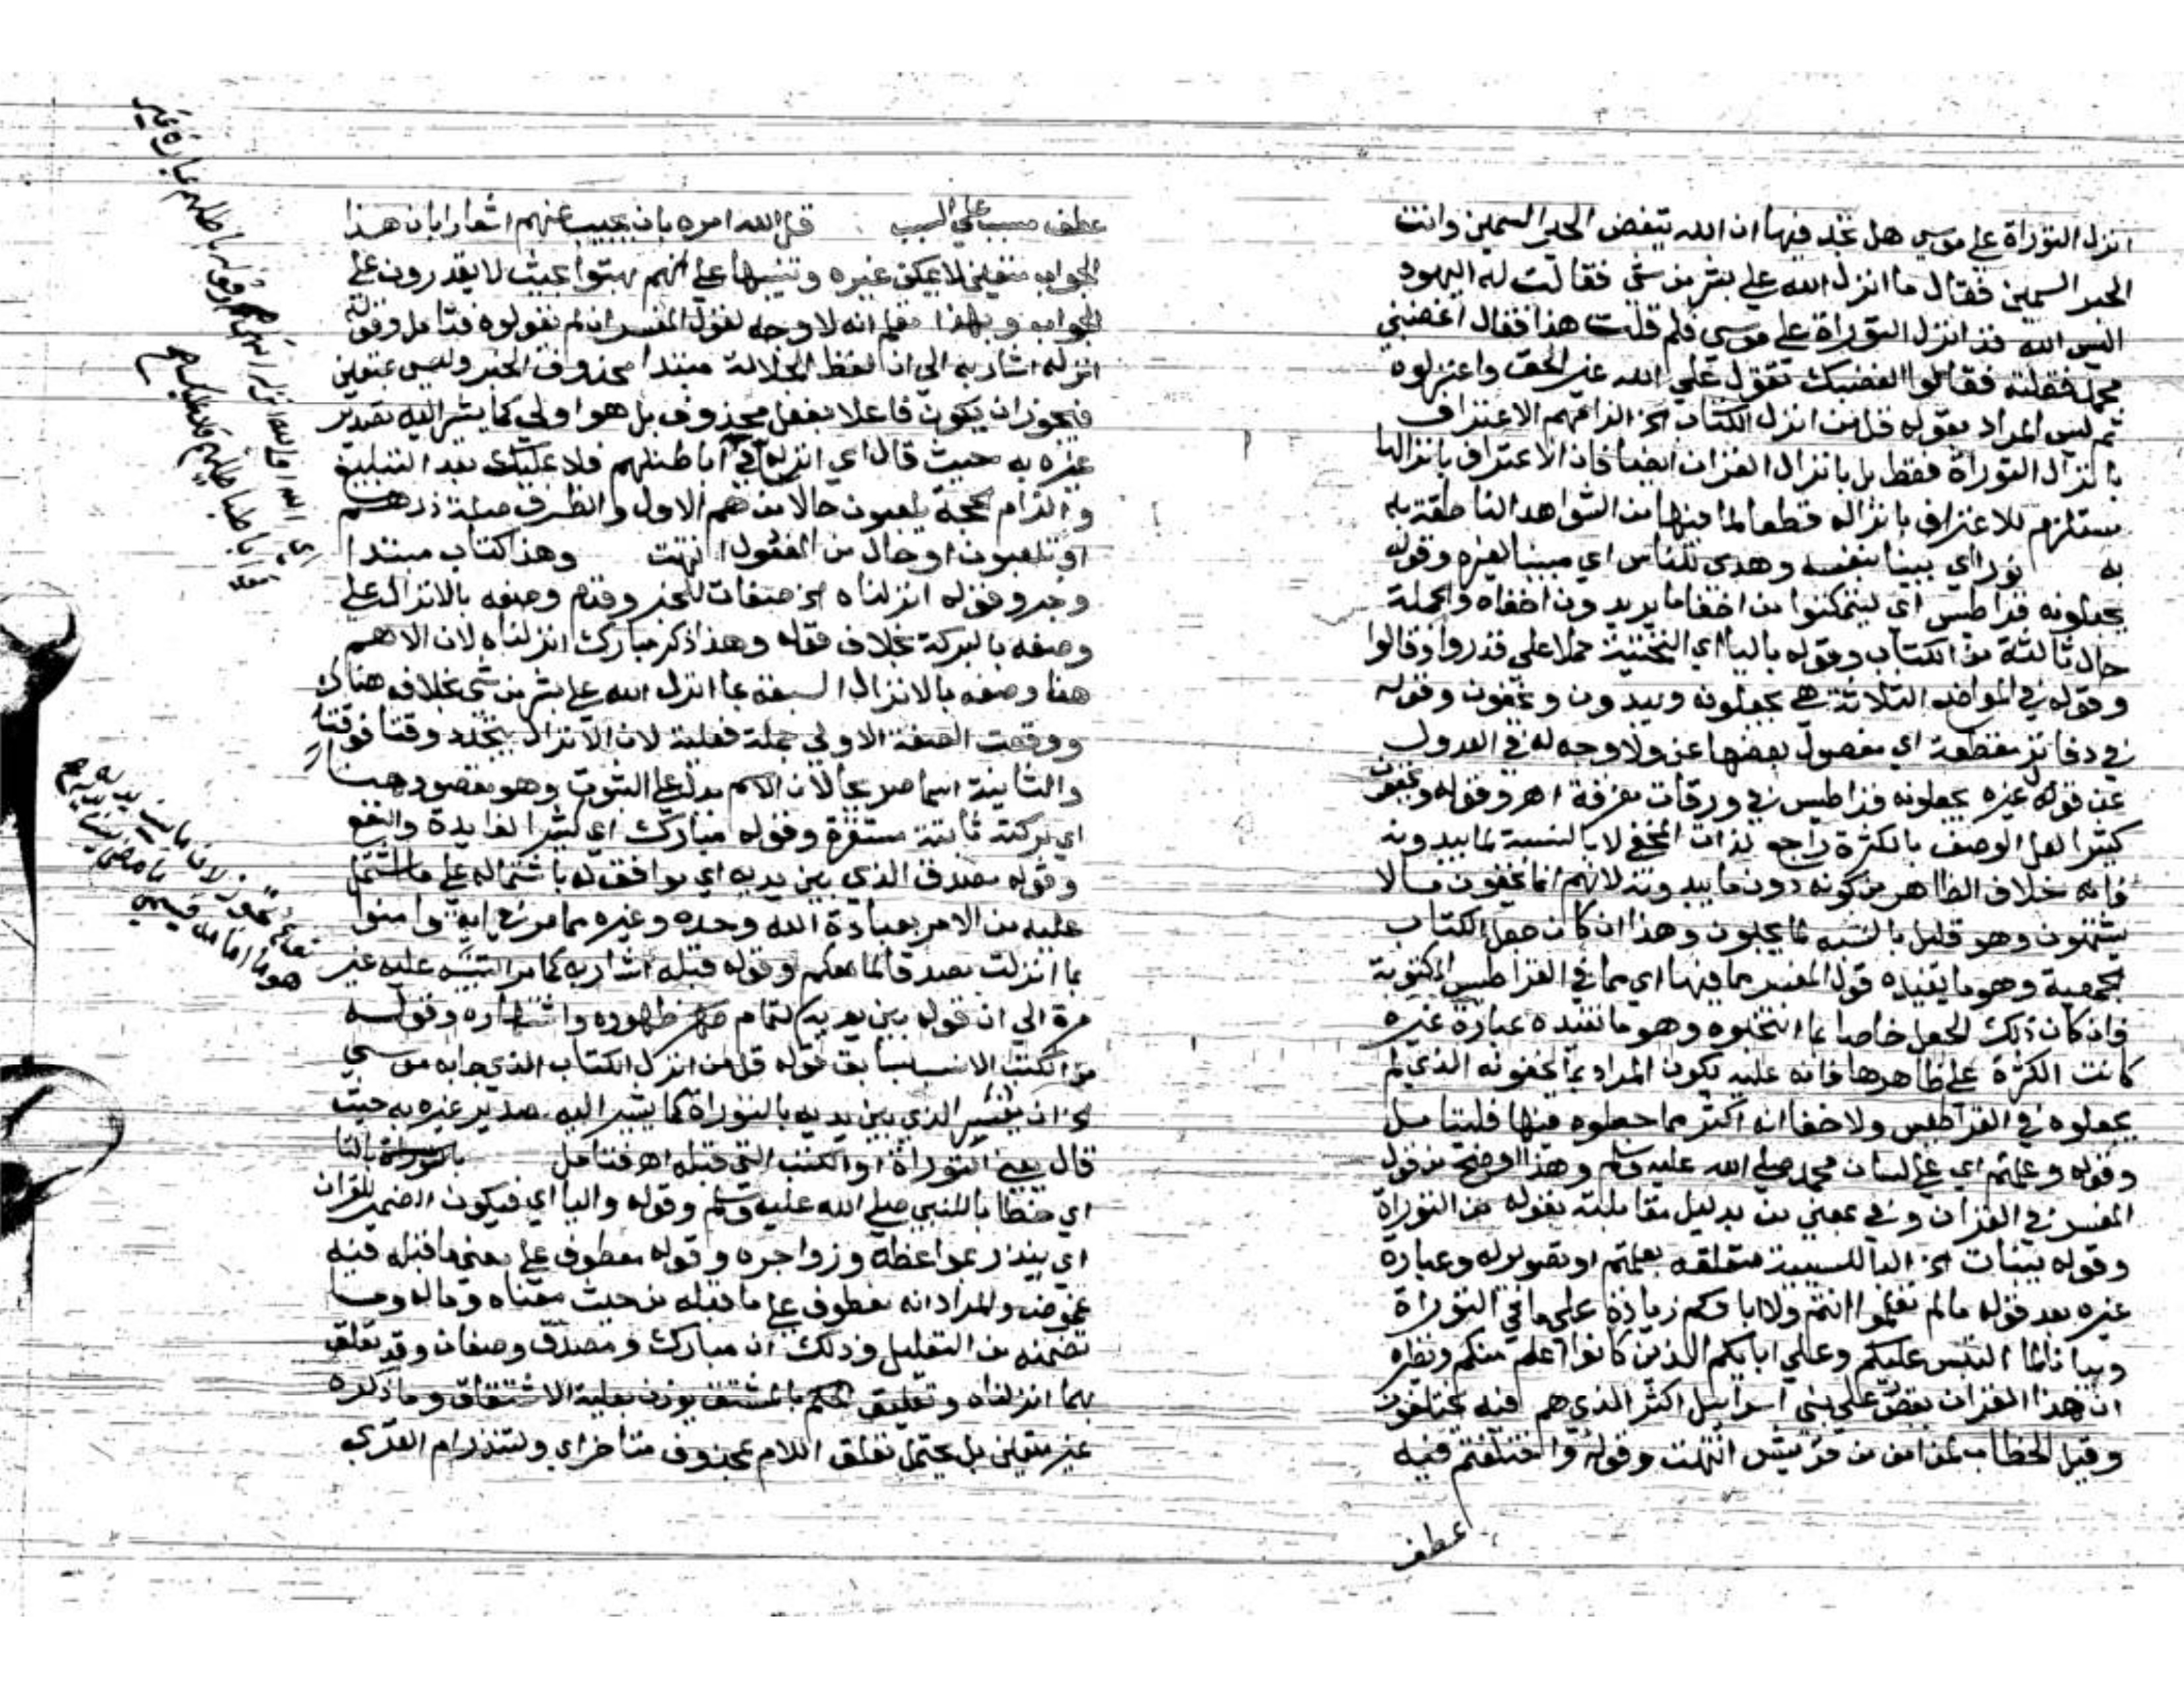 انزل التوراة على موسى هل تجد فيها ان الله يبغض الحبر السمين وانت
الحبر السمين فقال ما انزل الله على بشر من شي فقالت له اليهود
اليس الله قد انزل التوراة على موسى فلم قلت هذا فقال اغضبني
محمد فقلته فقالوا الغضبك تقول على الله غير الحق واعتزلوه
ثم ليس المراد بقوله قل من انزل الكتاب الخ الزامهم الاعتراف
بانزال التوراة فقط بل بانزال القران ايضا فان الاعتراف بانزالها
مستلزم للاعتراف بانزاله قطعا لما فيها من الشواهد الناطقة به
به نورا اي بينا بنفسه وهدى للناس اي مبينا لغيره وقوله
يجعلونه قراطيس اي ليتمكنوا من اخفا ما يريدون اخفاه والجملة
حال ثالثة من الكتاب وقوله باليا اي التحتية حملا على قدروا وقالوا
وقوله في المواضع الثلاثة هي يجعلونه ويبدون ويخفون وقوله
في دفاتر مقطعة اي مفصول بعضها عن ولا وجه له في العدول
عن قول غيره يجعلونه قراطيس في ورقات مفرقة اهـ وقوله ويخفون
كثيرا لعل الوصف بالكثرة راجع لذات المخفى لا بالنسبة لما يبدونه
فانه خلاف الظاهر من كونه دون ما يبدونه لانهم انما يخفون ما لا
يشتهون وهو قليل بالنسبة لما يحبون وهذا ان كان جعل الكتاب
بجمعية وهو ما يفيده قول المفسر مما فيها اي مما في القراطيس المكتوبة
فان كان ذلك الجعل خاصا بما انتخبوه وهو ما تفيده عبارة غيره
كانت الكثرة على ظاهرها فانه عليه يكون المراد بما يخفونه الذي لم
يجعلوه في القراطيس ولا خفا انه اكثر مما جعلوه فيها فليتامل
وقوله وعلمتم اي على لسان محمد صلى الله عليه وسلم وهذا اوضح من قول
المفسر في القران وفي بمعنى من بدليل مقابلته بقوله من التوراة
وقوله ببيان الخ البا للسببية متعلقه بعلمتم او تصويرله وعبارة
غيره بعد قوله ما لم تعلموا انتم ولا اباوكم زيادة على ما في التوراة
وبيانا لما التبس عليكم وعلى ابايكم الذين كانوا اعلم منكم ونظيره
ان هذا القران يقص على بني اسراييل اكثر الذي هم فيه يختلفون
وقيل الخطاب لمن امن من قريش انتهت وقوله واختلفتم فيه
عطف
عطف مسبب على السبب قل الله امره بان يجيب عنهم اشعارا بان هذا
الجواب متعين لا يمكن غيره وتنبيها على انهم بهتوا بحيث لا يقدرون على
الجواب وبهذا تعلم انه لا وجه لقول المفسر ان لم يقولوه فتامل وقوله
انزله اشار به الى ان لفظ الجلالة مبتدا محذوف الخبر وليس بمتعين
فيجوز ان يكون فاعلا بفعل محذوف بل هو اولى كما يشير اليه تقدير
غيره به حيث قال اي انزله في اباطيلهم فلا عليك بعد التبليغ
والزام الحجة يلعبون حال من هم الاول والظرف صلة ذرهم
او يلعبون او حال من المفعول انتهت وهذا كتاب مبتدا
وخبر وقوله انزلناه الخ صفات للخبر وقدم وصفه بالانزال على
وصفه بالبركة بخلاف قوله وهذا ذكر مبارك انزلناه لان الاهم
هنا وصفه بالانزال السبقه بما انزل الله على بشر من شي بخلافه هناك
ووقعت الصفة الاولى جملة فعلية لان الانزال يتجدد وقتا فوقتا
والثانية اسما صريحا لان الاسم يدل على الثبوت وهو مقصود هنا
اي بركته ثابتة مستقرة وقوله مبارك اي كثير الفايدة والنفع
وقوله مصدق الذي بين يديه اي موافق له باشتماله على ما اشتمل
عليه من الامر بعبادة الله وحده وغيره مما مر في اية وامنوا
بما انزلت مصدقا لما معكم وقوله قبله اشار به كما مر التنبيه عليه غير
مرة الى ان قوله بين يديه لتمام ظهوره واشتهاره وقوله
من الكتب الانسب بسابق قوله قل من انزل الكتاب الذي جا به موسى
الخ ان يفسر الذي بين يديه بالتوراة كما يشير اليه صدير غيره به حيث
قال يعني التوراة او الكتب التي قبله اهـ فتامل بالتا
اي خطابا للنبي صلى الله عليه وسلم وقوله واليا اي فيكون الضمير للقران
اي ينذر بمواعظه وزواجره وقوله معطوف على معنى ما قبله فيه
غموض والمراد انه معطوف على ما قبله من حيث معناه وماله وما
تضمنه من التعليل وذلك ان مبارك ومصدق وصفان وقد تعلق
بهما انزلناه وتعليق الحكم بالمشتق يوذن بعلية الاشتقاق وما ذكره
غير متعين بل يحتمل تعلق اللام بمحذوف متاخر اي ولتنذر ام القرى